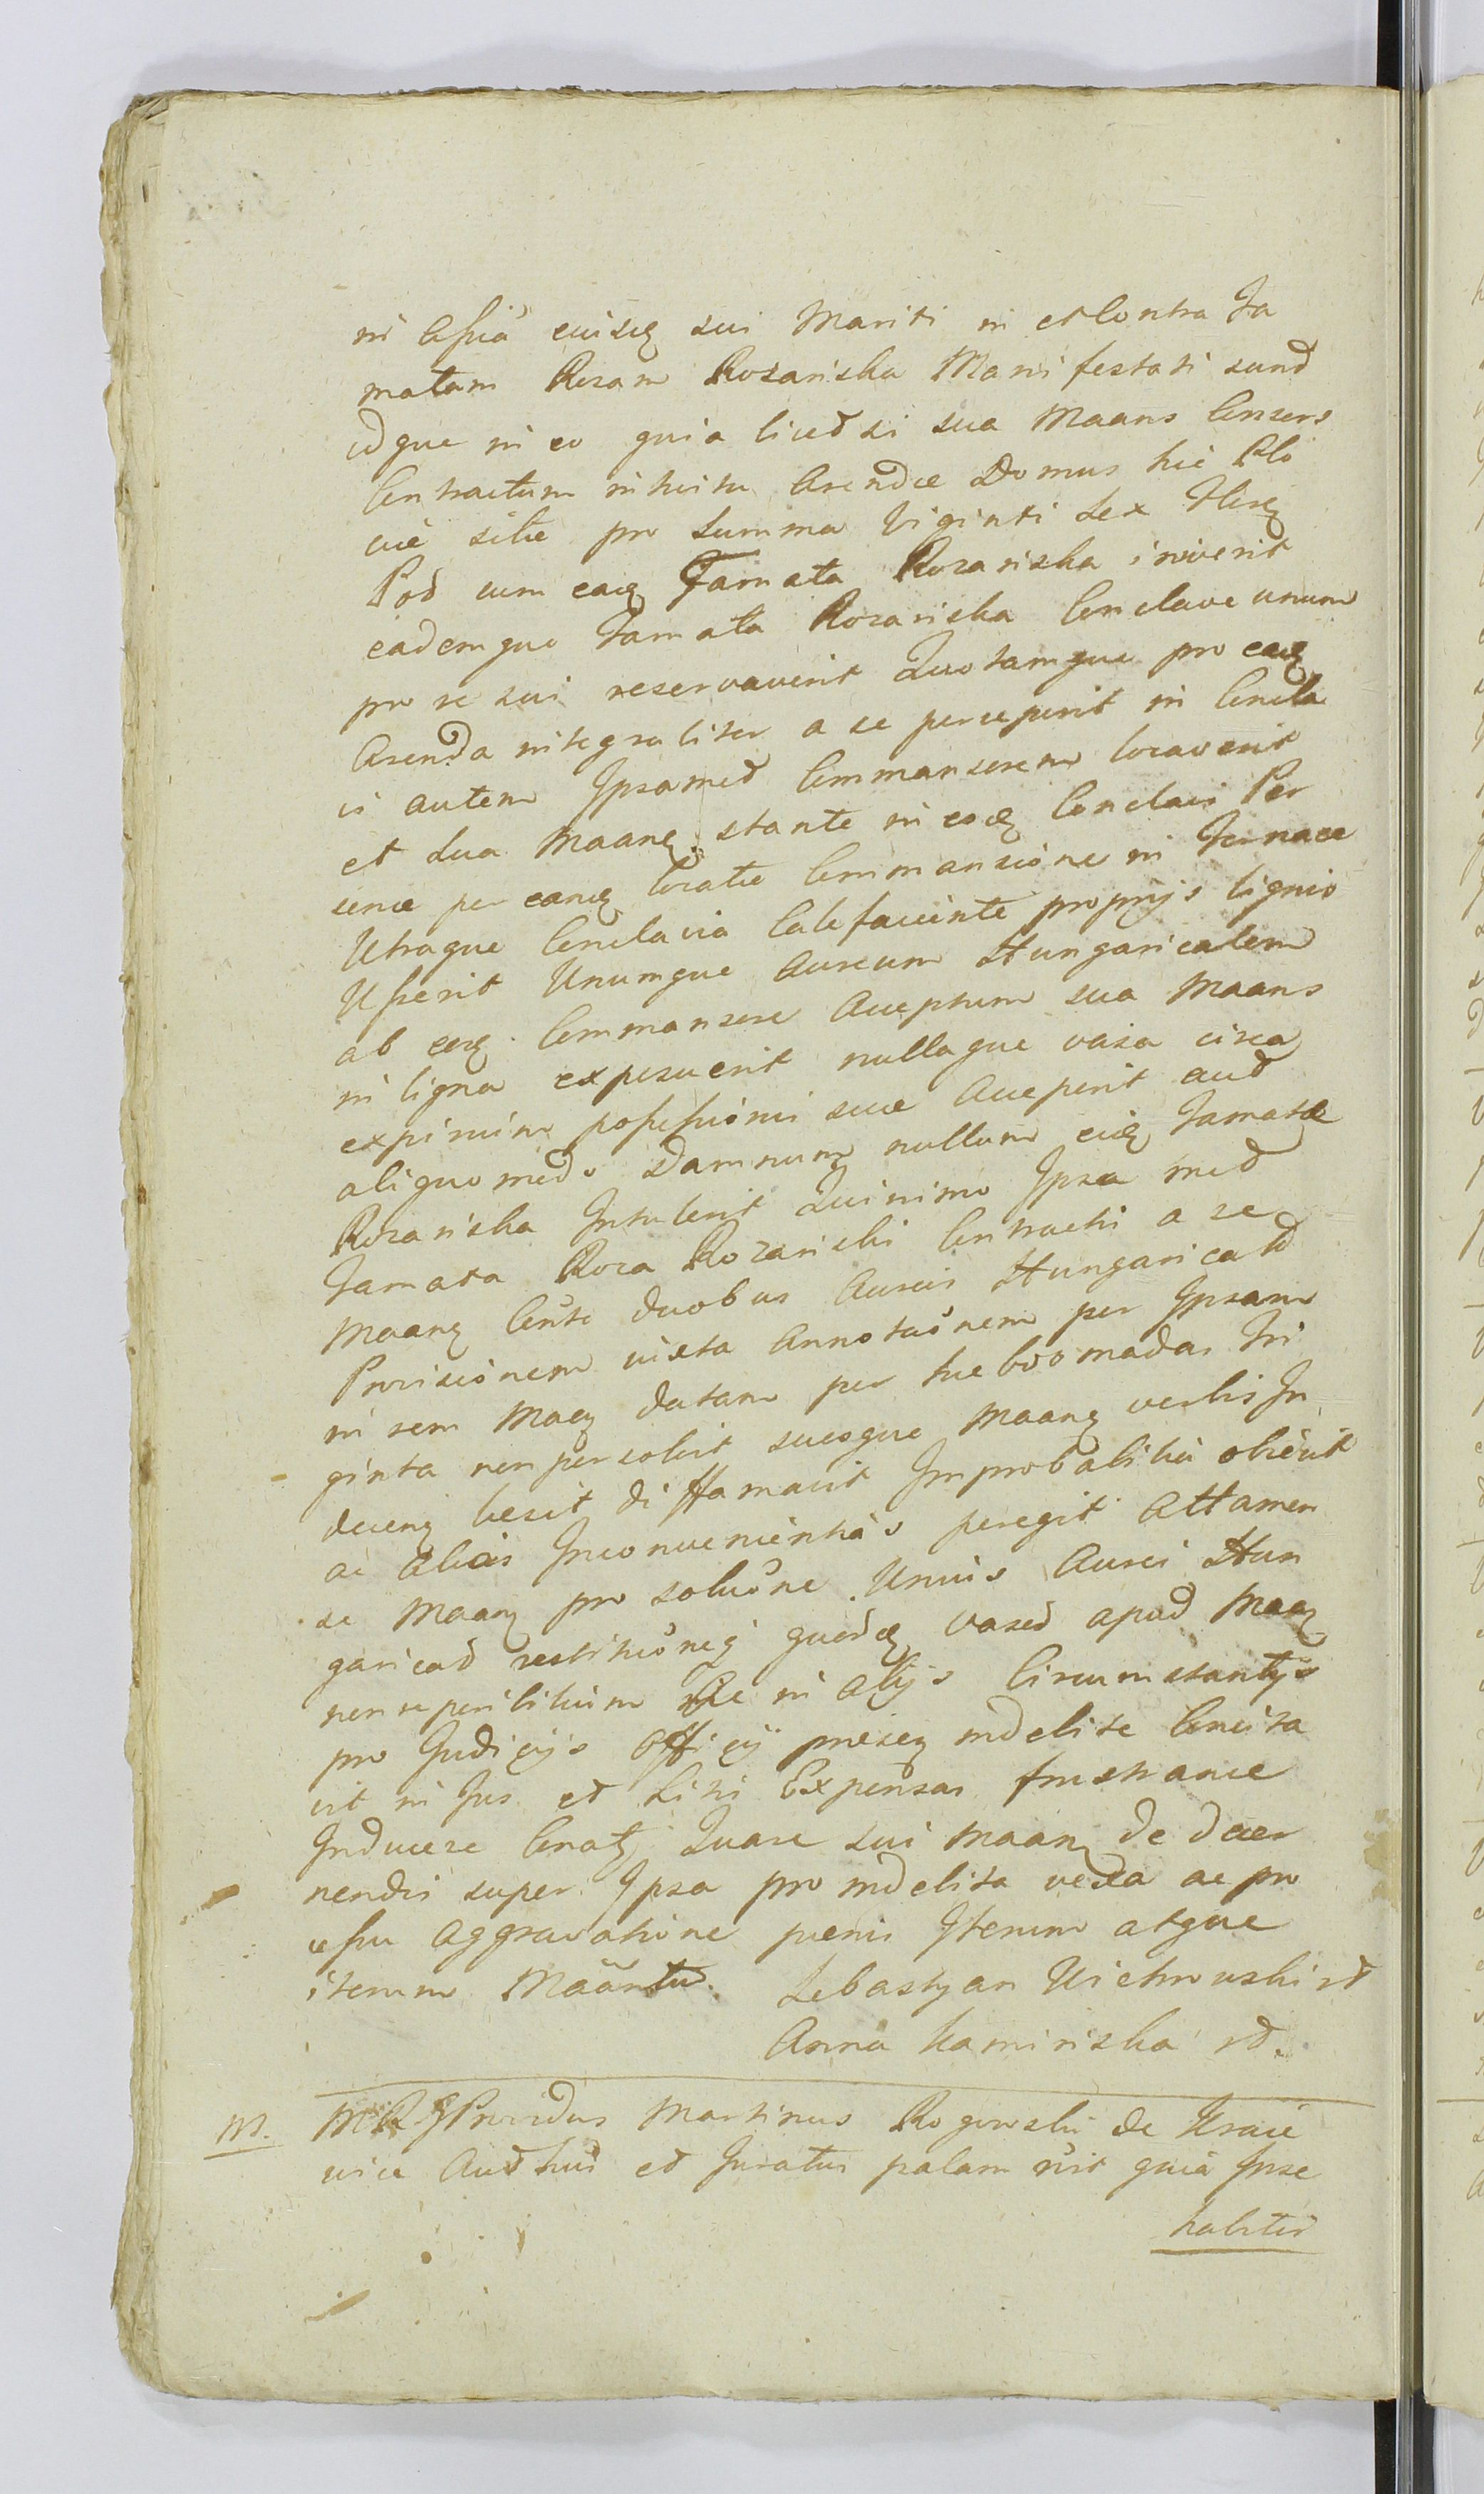 in Assia eiusq sui Mariti in et Contra Fa
matam Rosam Rozanska Manifestati sund
idque in eo quia licet si sua Maans Consers
Contractum intuitu Arendæ Domus hic Plo
ciæ sitæ pro Summa Viginti Sex Flrq
Pod cum eaq Famata Rozanska iniverit
eademque Famata Rozanska Conclave unum
pro se sui reservaverit Quotamque pro eaq
Arenda integraliter a se perceperit in Concla
vi autem Ipsamed Commansorem locaverit
et Sua Maanq stante in eoq Conclavi Per
sonæ per eanq locatæ Commansione in Fornace
Utraque Conclavia Calefaciente proprijs lignis
Usserit Unumque Aureum Hungaricalem
ab eoq Commansore Acceptum sua Maans
in ligna exposuerit nullaque vasa circa
expirium possessionis suæ Acceperit aud
aliquo modo Damnum nullum eiq Famatæ
Rozanska Intulerit Quinimo Ipsa med
Famata Rosa Rozanski Contracti a se
Maanq Cento duobus Aureis Hungaricald
Provisionem iuxta Annotaonem per Ipsam
in rem Maq datam per hebdomadas Tri
ginta non persolvit suosque Maanq verbis In
decenq lesit diffamavit Improbalibus obiecit
ac alias Inconvenientias peregit Attamen
se Maanq pro solutione Unius Aurei Hun
garicad restitutioneq quordq Vased apud Maaq
non reperibilium Ac in Alijs Circumstantijs
pro Judicijs Officij præseq indebite Concita
vit in Jus et Liti Expensas frustranee
Inducere Conatq Quare sui Maanq de decer
nendis super Ipsa pro indebita vexa ac pro
cessu Aggravatione pœnis Iterum atque
iterum Maantur. Sebastyan Wichrowski rd
Anna Kaminska rd.
M. Providus Martinus Rogowski de Kracie
wice Audthus et Juratus palam rit quia Ipse
habitis